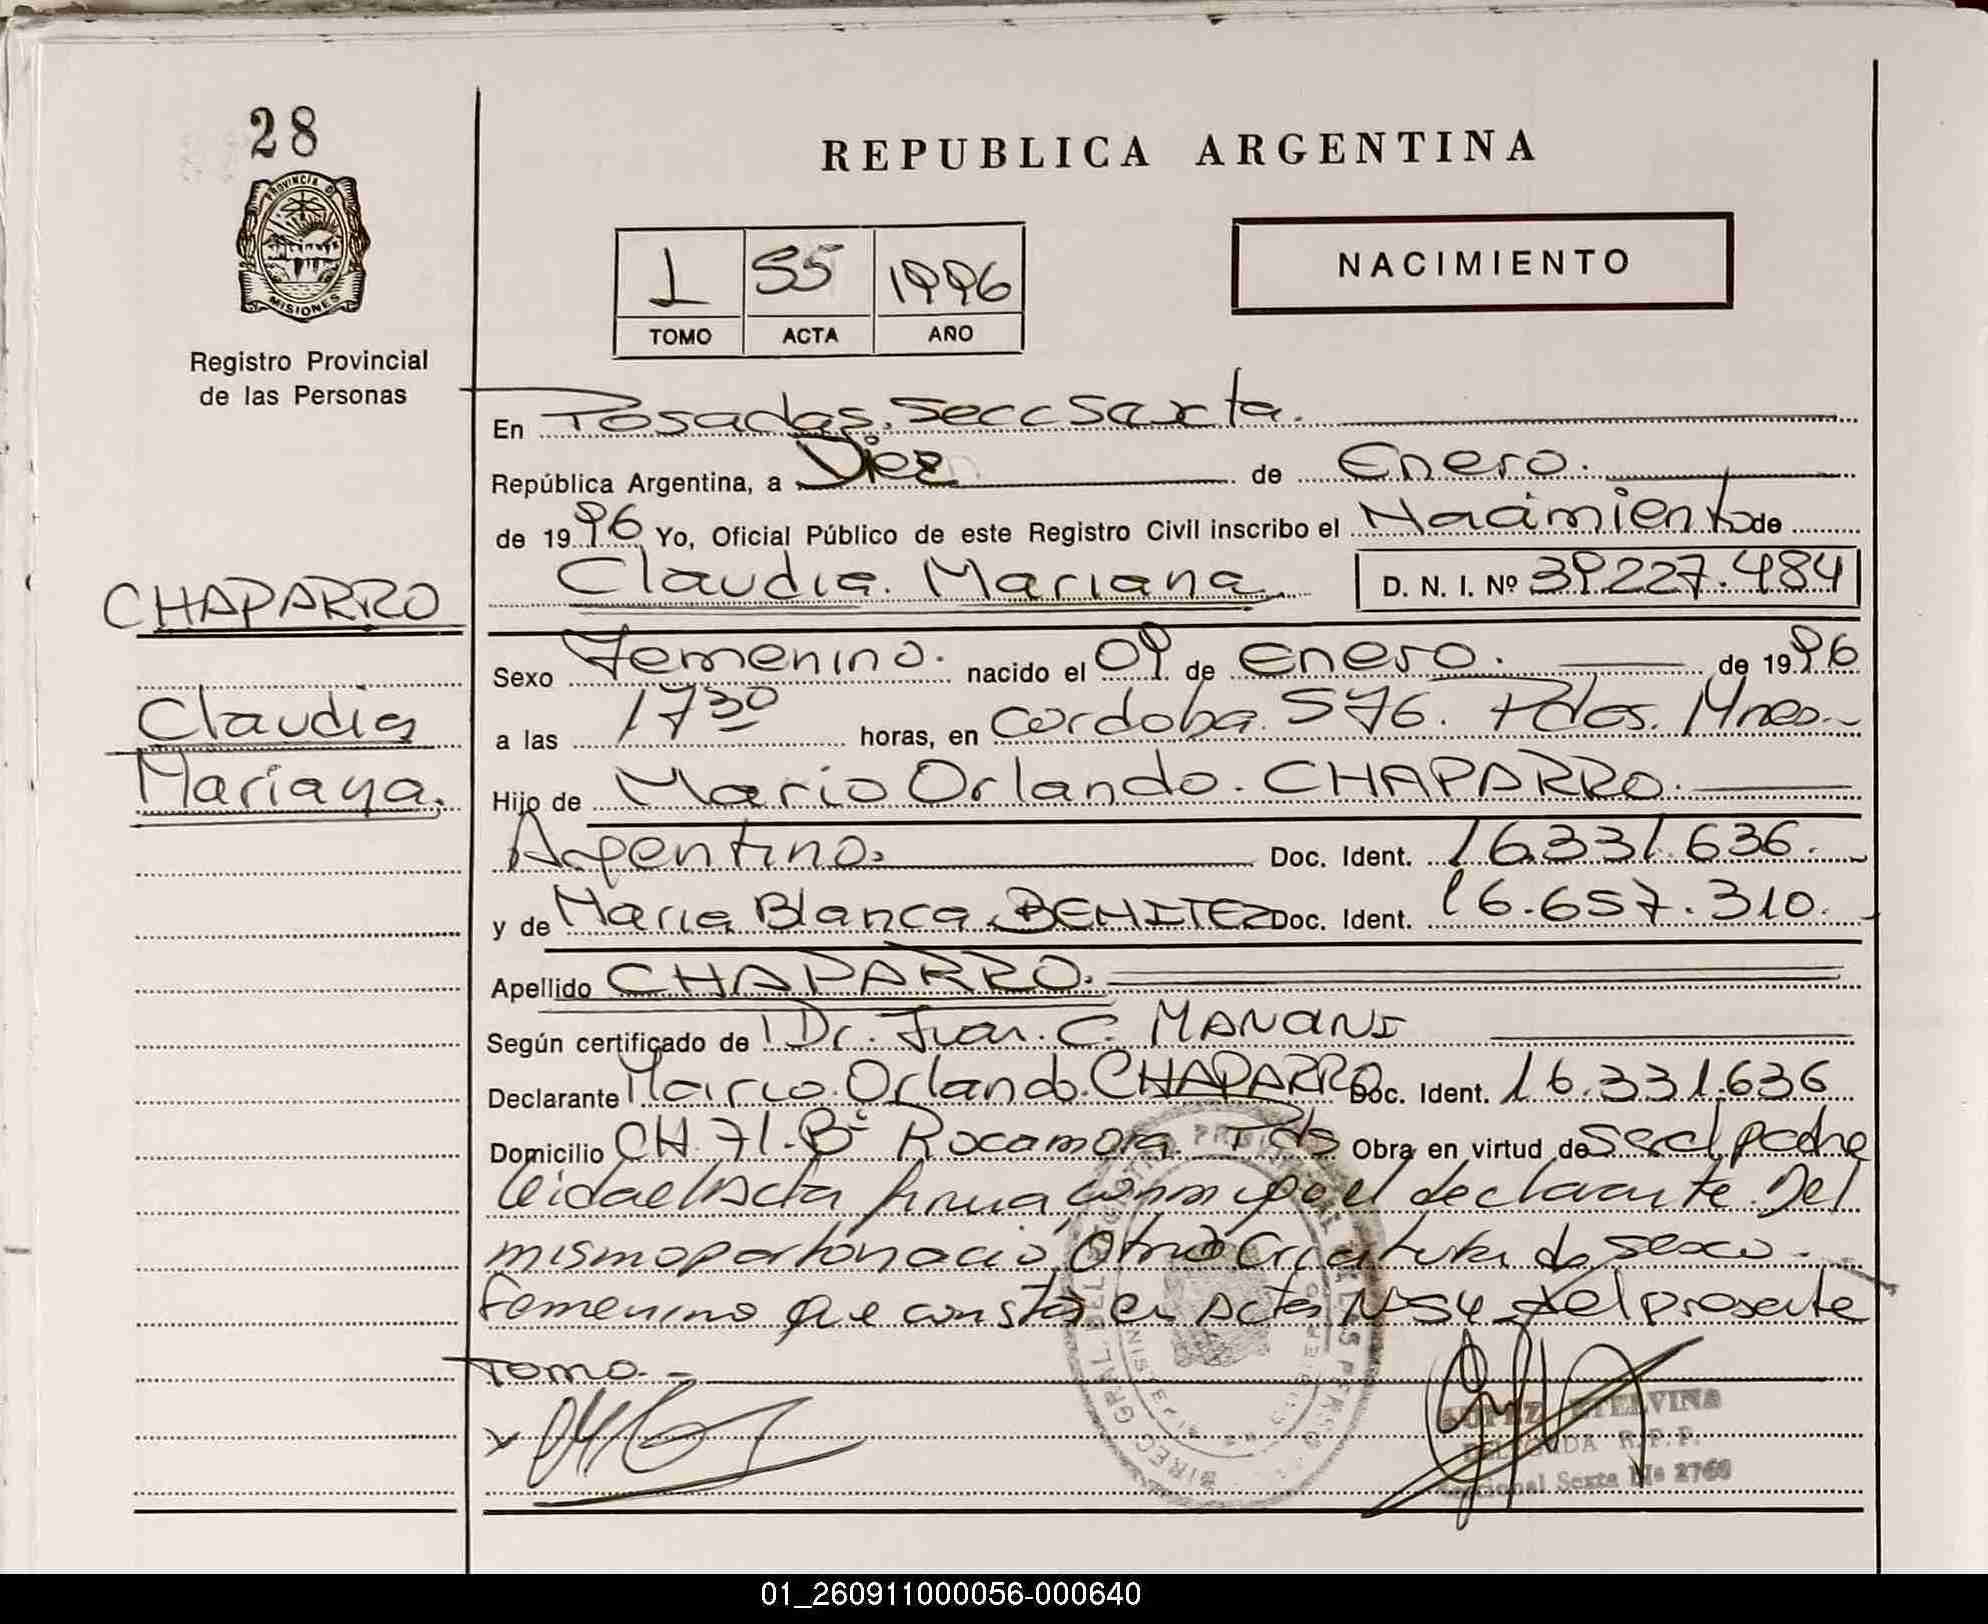 28
PROVINCIA D
MISIONES
Registro Provincial
de las Personas
REPUBLICA ARGENTINA
1 55 1996
TOMO ACTA AÑO
NACIMIENTO
En Posadas. Secc Sexta.
República Argentina, a Diez de Enero.
de 1996 Yo, Oficial Público de este Registro Civil inscribo el Nacimiento de
Claudia. Mariana D. N. I. Nº 39.227.484
CHAPARRO
Sexo Femenino. nacido el 09 de Enero. de 1996
Claudia
a las 17 30 horas, en Cordoba 576. Pdas. Mnes.
Mariana.
Hijo de Mario Orlando. CHAPARRO.
Argentino. Doc. Ident. 16.331.636.
y de Maria Blanca. BENITEZ Doc. Ident. 16.657.310.
Apellido CHAPARRO.
Según certificado de Dr. Juan. C.
Declarante Mario. Orlando. CHAPARRO Doc. Ident. 16.331.636
Domicilio CH 71. Bº Rocamora. Pdas Obra en virtud de ser el padre
leida el acta firma conmigo el declarante. Del
mismo parto nacio otra criatura de sexo
femenino que consta en acta Nº 54 del presente
Tomo.
LOPEZ ETELVINA
DELEGADA R.P.P.
Seccional Sexta
01_260911000056-000640